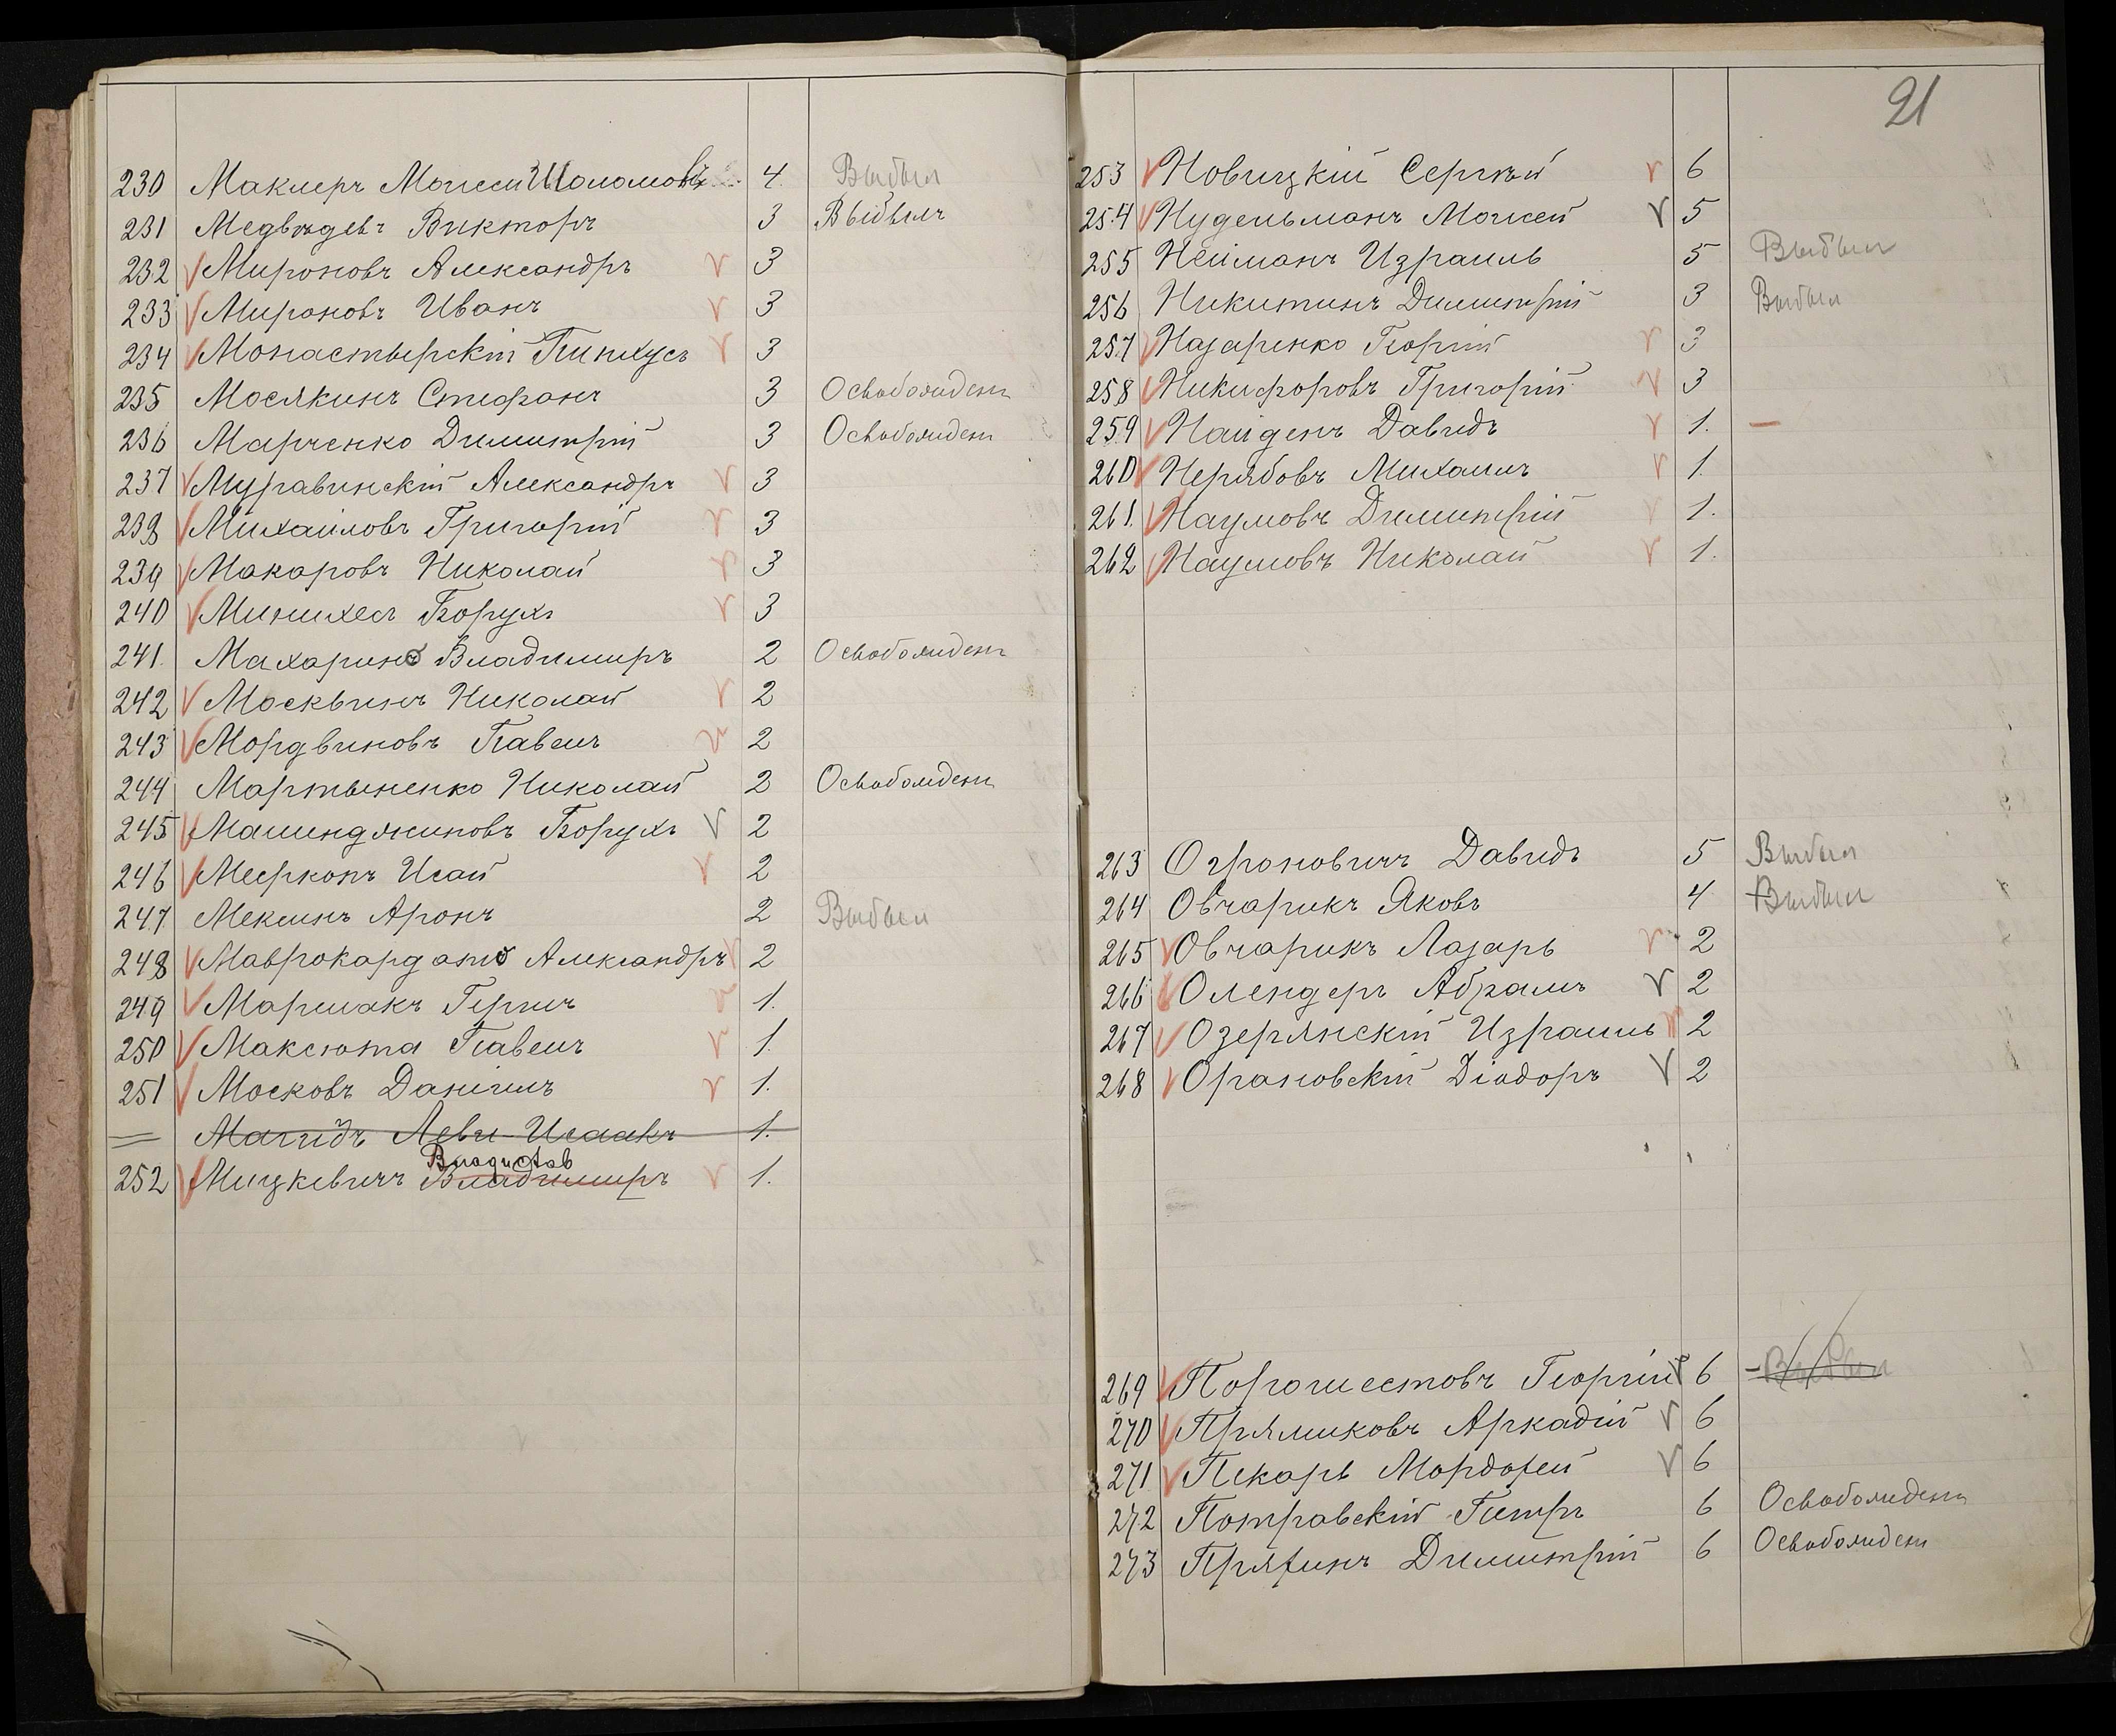 230 Маклеръ Моисей Шоломовъ 4. Выбыл
231 Медвѣдевъ Викторъ 3 Выбылъ
232 Мироновъ Александръ 3
233 Мироновъ Иванъ 3
234 Монастырскій Пинхусъ 3
235 Мосякинъ Стефанъ 3 Освобожденъ
236 Марченко Димитрій 3 Освобожден
237 Муравинскій Александръ 3
238 Михайловъ Григорій 3
239 Макаровъ Николай 3
240 Минихесъ Борухъ 3
241. Махарин Владимиръ 2 Освобожденъ
242 Москвинъ Николай 2
243 Мордвиновъ Павелъ 2
244 Мартыненко Николай 2 Освобожденъ
245 Борухъ 2
246 Мееркопъ Исай 2
247 Меклинъ Аронъ 2 Выбыл
248 Маврокардато Александръ 2
249 Маршакъ Гершъ 1.
250 Максюта Павелъ 1.
251 Московъ Даніилъ 1.
Магидъ Леви-Исаакъ 1.
Владислав
252 Мицкевичъ Владимиръ 1.
21
253 Новицкій Сергѣй 6
254 Нудельманъ Моисей 5
255 Нейманъ Израиль 5 Выбыл
256 Никитинъ Димитрій 3 Выбыл
257 Назаренко Георгій 3
258 Никифоровъ Григорій 3
259 Найденъ Давидъ 1. —
260 Нерябовъ Михаилъ 1.
261. Наумовъ Димитрій 1.
262 Наумовъ Николай 1.
263 Огроновичъ Давидъ 5 Выбыл
264 Овчарикъ Яковъ 4 Выбыл
265 Овчарикъ Лазарь 2
266 Олендеръ Абрамъ 2
267 Озерянскій Израиль 2
268 Орановскій Діодоръ 2
269 Георгій 6 Выбыл
270 Прямиковъ Аркадій 6
271 Пекарь Мордофей 6
272 Потравскій Петръ 6 Освобожденъ
273 Пряхинъ Димитрій 6 Освобожден